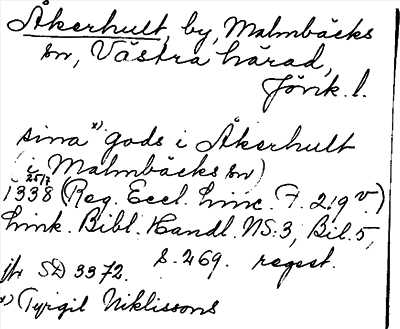 Åkerhult, by, Malmbäcks
sn, Västra härad,
Jönk. l.
sina x) gods i Åkerhult
(i Malmbäcks sn)
1338 25/7 (Reg. Eccl. Linc. F. 219 v)
Link. Bibl. Handl. NS:3, Bil. 5,
s. 269. regest.
jfr SD 3372.
x) (Tyrgil Niklissons